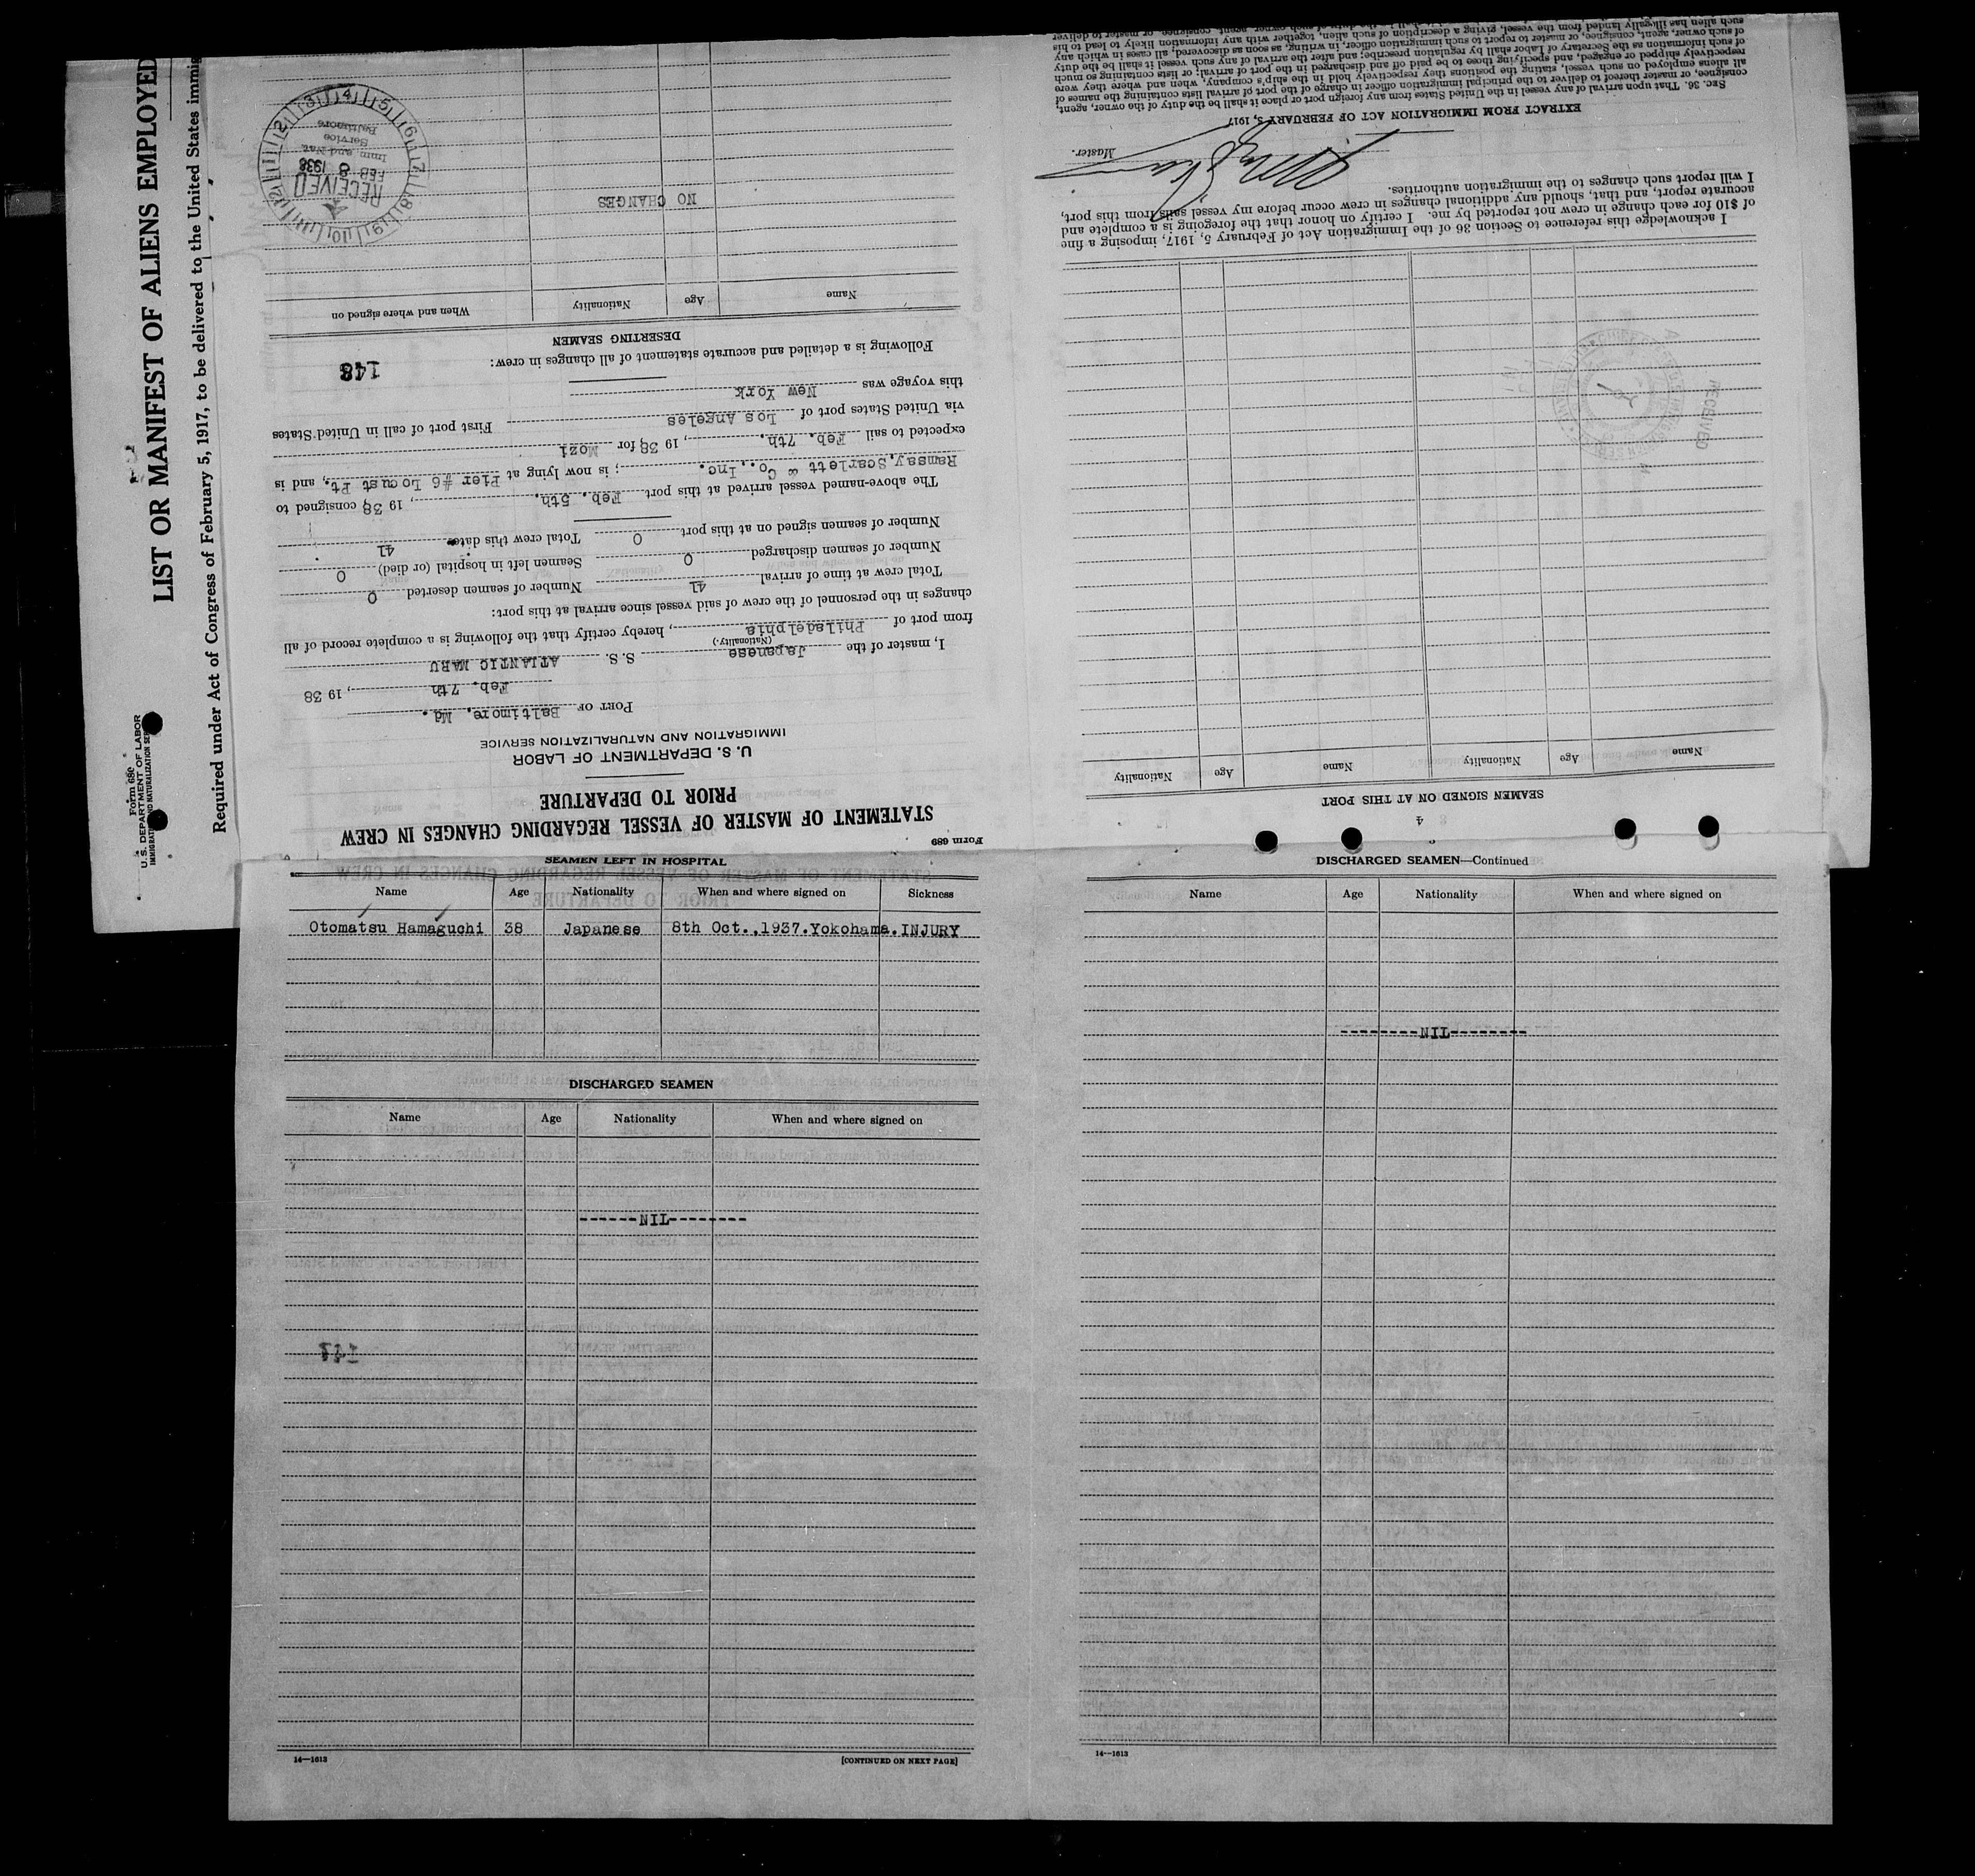 Form 680
U. S. DEPARTMENT OF LABOR
IMMIGRATION AND NATURALIZATION SER
LIST OR MANIFEST OF ALIENS EMPLOYED
Required under Act of Congress of February 5, 1917, to be delivered to the United States immig
Form 689
STATEMENT OF MASTER OF VESSEL REGARDING CHANGES IN CREW
PRIOR TO DEPARTURE
U. S. DEPARTMENT OF LABOR
IMMIGRATION AND NATURALIZATION SERVICE
PORT OF Baltimore, Md.
Feb. 7th, 1938
I, master of the Japanese S. S. ATLANTIC MARU
(Nationality.)
from port of Philadelphia, hereby certify that the following is a complete record of all
changes in the personnel of the crew of said vessel since arrival at this port:
Total crew at time of arrival 41 Number of seamen deserted 0
Number of seamen discharged 0 Seamen left in hospital (or died) 0
Number of seamen signed on at this port 0 Total crew this date 41
The above-named vessel arrived at this port Feb. 5th, 1938 consigned to
Ramsay, Scarlett & Co., Inc.; is now lying at Pier #6 Locust Pt., and is
expected to sail Feb. 7th, 1938 for Mozi
via United States port of Los Angeles First port of call in United States
this voyage was New York
Following is a detailed and accurate statement of all changes in crew:
148
DESERTING SEAMEN
Name Age Nationality When and where signed on
NO CHANGES
RECEIVED
FEB 8 1938
Imm and Nat.
Service
Baltimore
1 2 3 4 5 6 7 8 9 10 11 12
4
SEAMEN SIGNED ON AT THIS PORT
Name Age Nationality Name Age Nationality
RECEIVED
I acknowledge this reference to Section 36 of the Immigration Act of February 5, 1917, imposing a fine
of $10 for each change in crew not reported by me. I certify on honor that the foregoing is a complete and
accurate report, and that, should any additional changes in crew occur before my vessel sails from this port,
I will report such changes to the immigration authorities.
Master.
EXTRACT FROM IMMIGRATION ACT OF FEBRUARY 5, 1917
SEC. 36. That upon arrival of any vessel in the United States from any foreign port or place it shall be the duty of the owner, agent,
consignee, or master thereof to deliver to the principal immigration officer in charge of the port of arrival lists containing the names of
all aliens employed on such vessel, stating the positions they respectively hold in the ship's company, when and where they were
respectively shipped or engaged, and specifying those to be paid off and discharged in the port of arrival; or lists containing so much
of such information as the Secretary of Labor shall by regulation prescribe; and after the arrival of any such vessel it shall be the duty
of such owner, agent, consignee, or master to report to such immigration officer, in writing, as soon as discovered, all cases in which any
such alien has illegally landed from the vessel, giving a description of such alien, together with any information likely to lead to his
SEAMEN LEFT IN HOSPITAL
Name Age Nationality When and where signed on Sickness
Otomatsu Hamaguchi 38 Japanese 8th Oct.,1937.Yokohama. INJURY
DISCHARGED SEAMEN
Name Age Nationality When and where signed on
------NIL--------
147
14—1613 [CONTINUED ON NEXT PAGE]
DISCHARGED SEAMEN—Continued
Name Age Nationality When and where signed on
--------NIL--------
14—1613